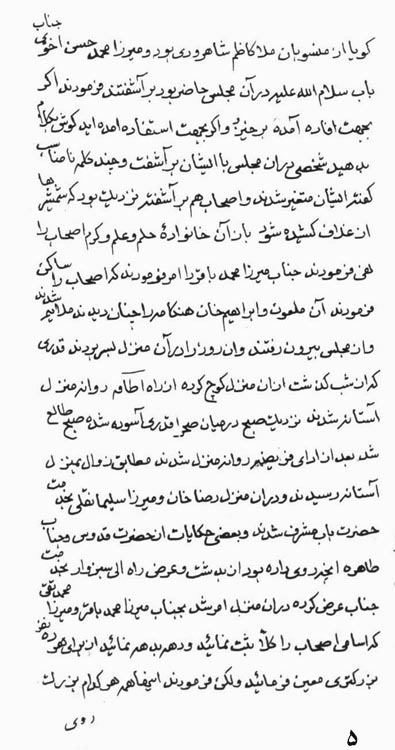 جناب
کویا از منسوبان ملا کاظم شاهرودی بود و میرزا محمد حسن اخوی
باب سلام الله علیه در آن مجلس حاضر بود بر آشفتند فرمودند اکر
بجهت افاده آمدهٔ برخیز و اکر بجهت استفاده آمده اید کوش بکلام
بدهید شخصی در آن مجلس با ایشان بر آشفت و چند کلمه نامناسب
کفتند ایشان متغیر شدند و اصحاب هم بر آشفتند نزدیک بود که شمشیرها
از غلاف کشیده شود باز آن خانوادهٔ حلم و علم و کرم اصحاب را
نهی فرمودند جناب میرزا محمد باقر را امر فرمودند که اصحاب را ساکن
فرمودند آن ملعون و ابراهیم خان هنکامه را چنان دیدند ملایم شدند
و از مجلس بیرون رفتند و آن روز را در آن منزل بسر بردند قدری
که از شب کذشت از آن منزل کوچ کرده از راه روانه منزل
آستانه شدند نزدیک صبح در میان صحرا قدری آسوده شده صبح طالع
شد بعد از ادای فریضه روانه منزل شدند مطابق زوال بمنزل
آستانه رسیدند و در آن منزل رضا خان و میرزا سلیمانقلی بخدمت
حضرت باب مشرف شدند و بعضی حکایات از حضرت قدوس و جناب
طاهره آنچه روی داده بود از بدشت و عرض راه الی سبزوار بخدمت
جناب عرض کرده در آن منزل امر شد بجناب میرزا محمد باقر و میرزا محمد تقی
که اسامی اصحاب را کلاً ثبت نمائید و دهه بدهه نمائید از برای هر ده نفر
بزرکتری معین فرمائید ولکن فرمودند اسفاهمه هر کدام بزرک
روی
۵